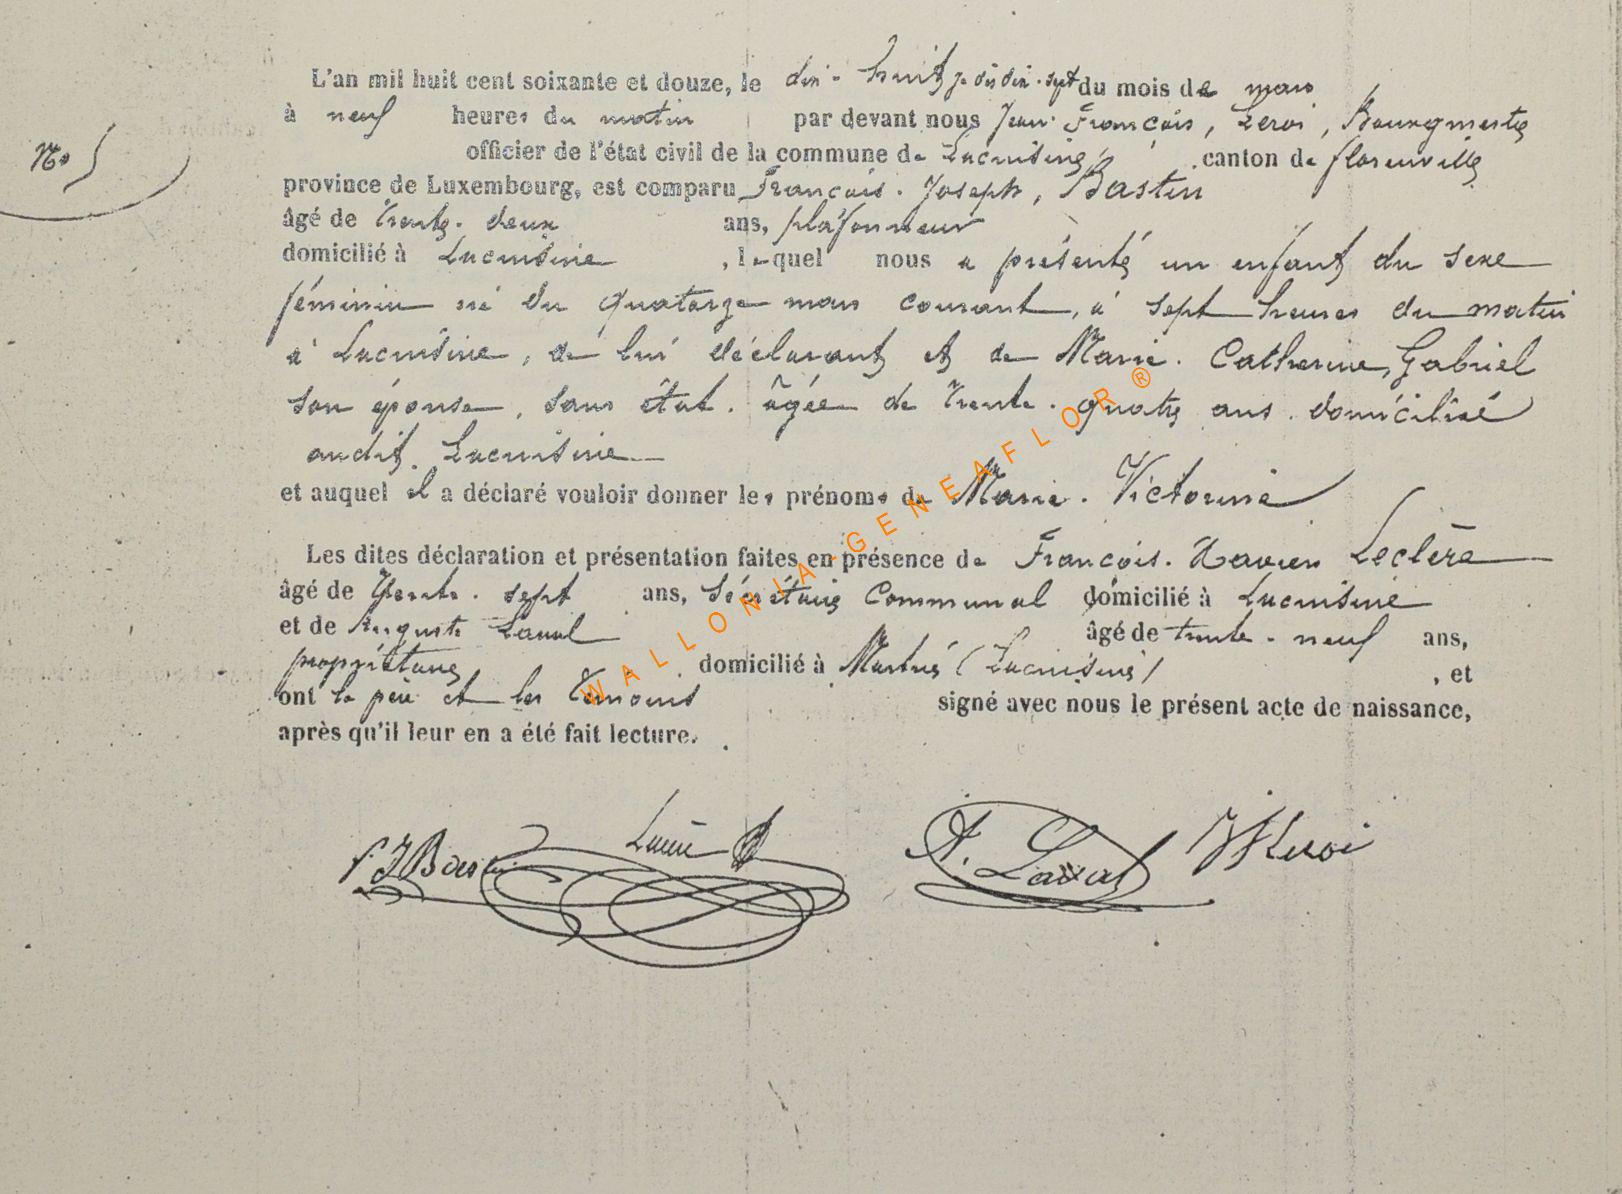 L'an mil huit cent soixante et douze, le dix-huit je dis dix-sept du mois de mars
à neuf heures du matin par devant nous Jean-François, Leroi, Bourgmestre
No 5
officier de l'état civil de la commune de Lacuisine, canton de florenville
province de Luxembourg, est comparu François-Joseph, Bastin
âgé de trente-deux ans, plafonneur
domicilié à Lacuisine, lequel nous a présenté un enfant du sexe
féminin né du quatorze mars courant, à sept heures du matin
à Lacuisine, de lui déclarant et de Marie-Catherine, Gabriel
son épouse, sans état, âgée de trente-quatre ans domicilié
audit Lacuisine
et auquel il a déclaré vouloir donner les prénoms de Marie-Victorine
Les dites déclaration et présentation faites en présence de François-Xavier Leclère
âgé de trente-sept ans, Sécrétaire Communal domicilié à Lacuisine
et de Auguste Laval âgé de trente-neuf ans,
propriétaire domicilié à Martué (Lacuisine), et
ont le père et les témoins signé avec nous le présent acte de naissance,
après qu'il leur en a été fait lecture.
F J Bastin A. Laval JF Leroi
WALLONIA-GENEAFLOR ®